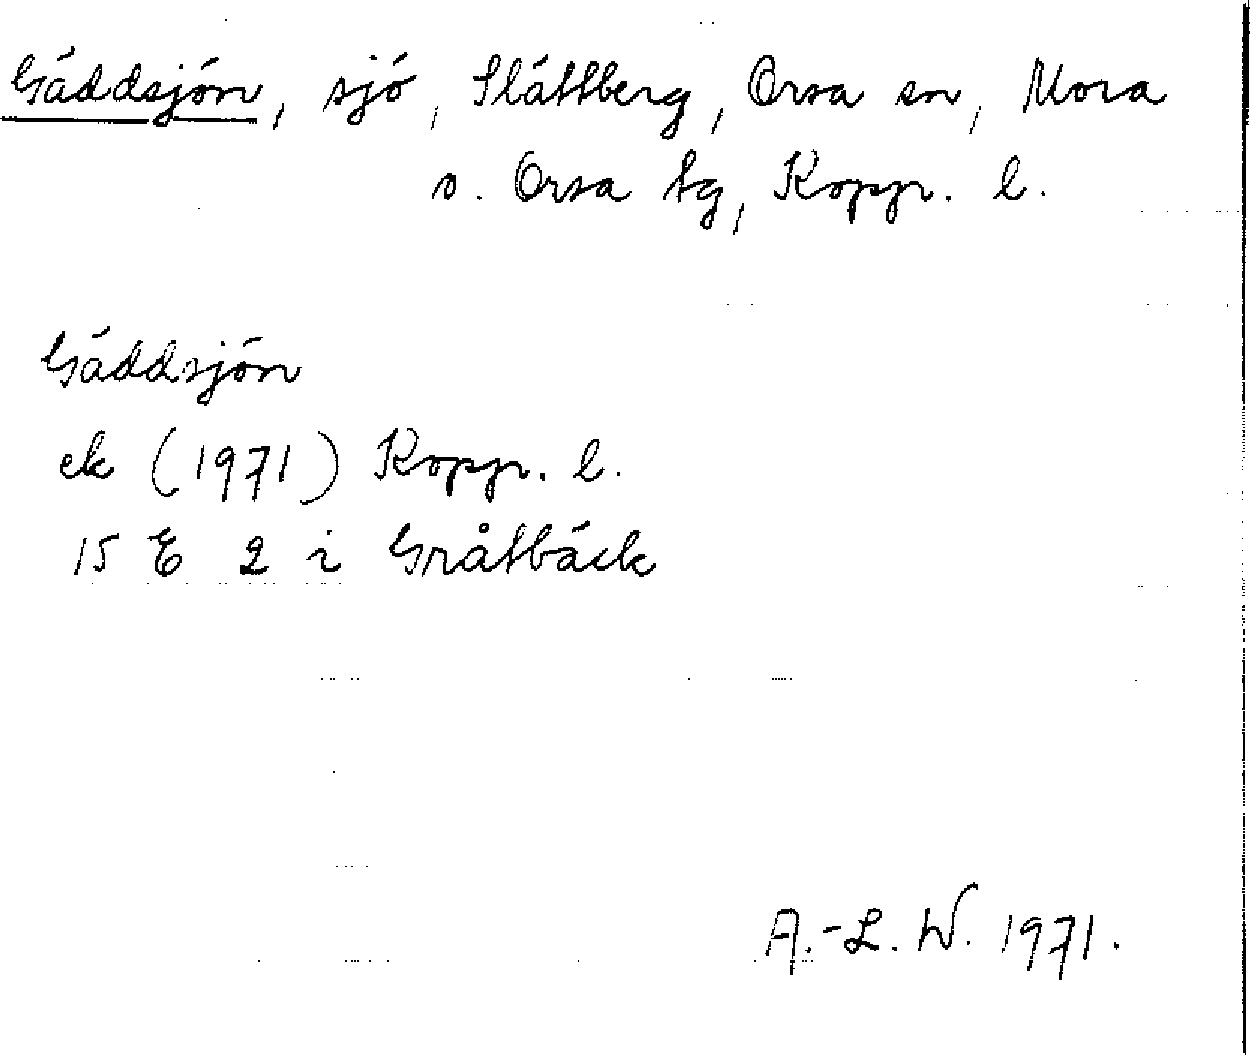 Gäddsjön, sjö, Slättberg, Orsa sn, Mora
o. Orsa tg, Koppr. l.
Gäddsjön
ek (1971) Koppr. l.
15 E 2 i Gråtbäck
A.-L. W. 1971.